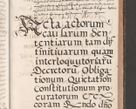 Acta actorum
causarum sen
tentiarum tam di
ffinitivarum quam
interloquutoriarũ
Decretorũ Obliga
tionum Quietation
Constitutionum
procuratorum